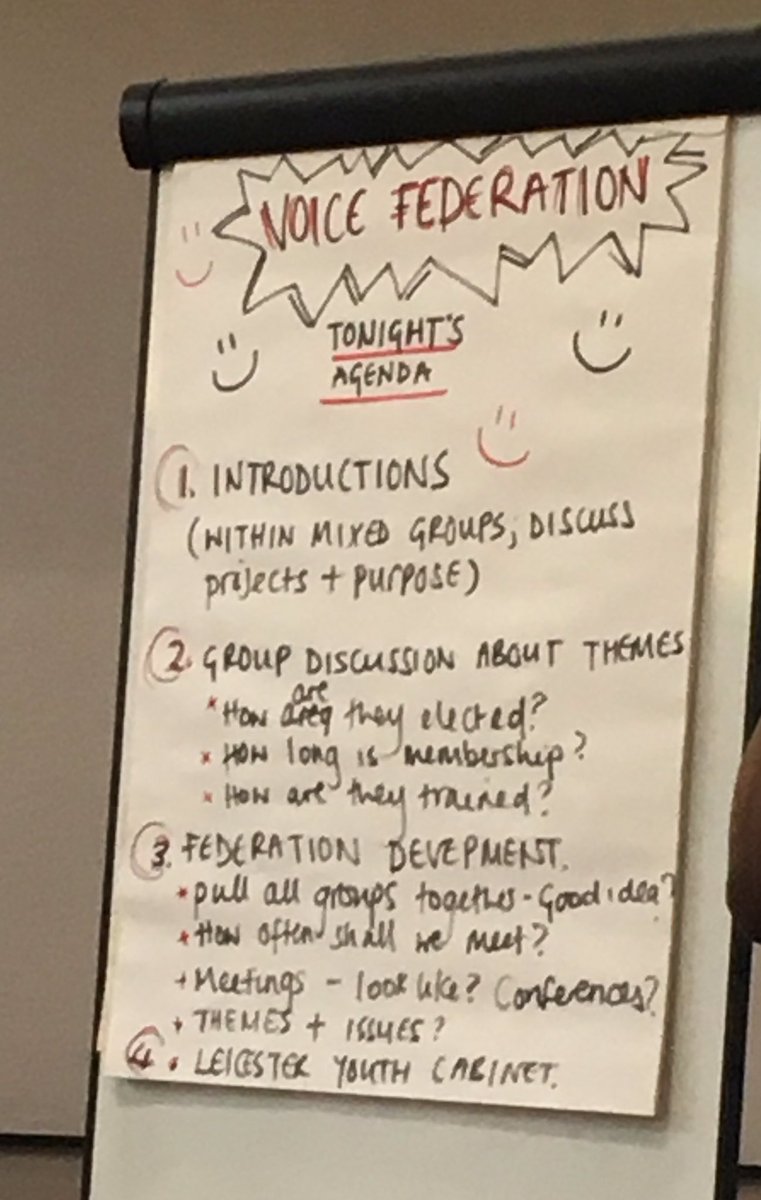 VOICE FEDERATION
TONIGHT'S
AGENDA
1. INTRODUCTIONS
(WITHIN MIXED GROUPS, DISCUSS
projects + PURPOSE)
2. GROUP DISCUSSION ABOUT THEMES
* How are they elected?
* HOW long is membership?
* How are they trained?
3. FEDERATION DEVEPMENT.
* pull all groups together - Good idea?
* How often shall we meet?
+ Meetings - look like? Conferences?
+ THEMES + ISSUES?
4. LEICESTER YOUTH CABINET.